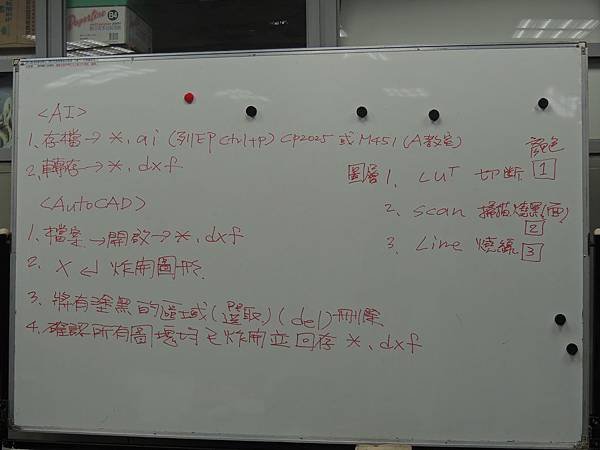 Paperline
B4
<AI>
1. 存檔→*.ai (列印 Ctrl+P) CP2025 或 M451 (A教室)
2. 轉存→*.dxf
<AutoCAD>
1. 檔案→開啟→*.dxf
2. X ↵ 炸開圖形.
3. 將有塗黑的區域(選取)(del)刪除
4. 確認所有圖塊均已炸開並回存 *.dxf
顏色
圖層 1. CUT 切斷 1
2. scan 掃描燒黑(面)
2
3. Line 燒線 3